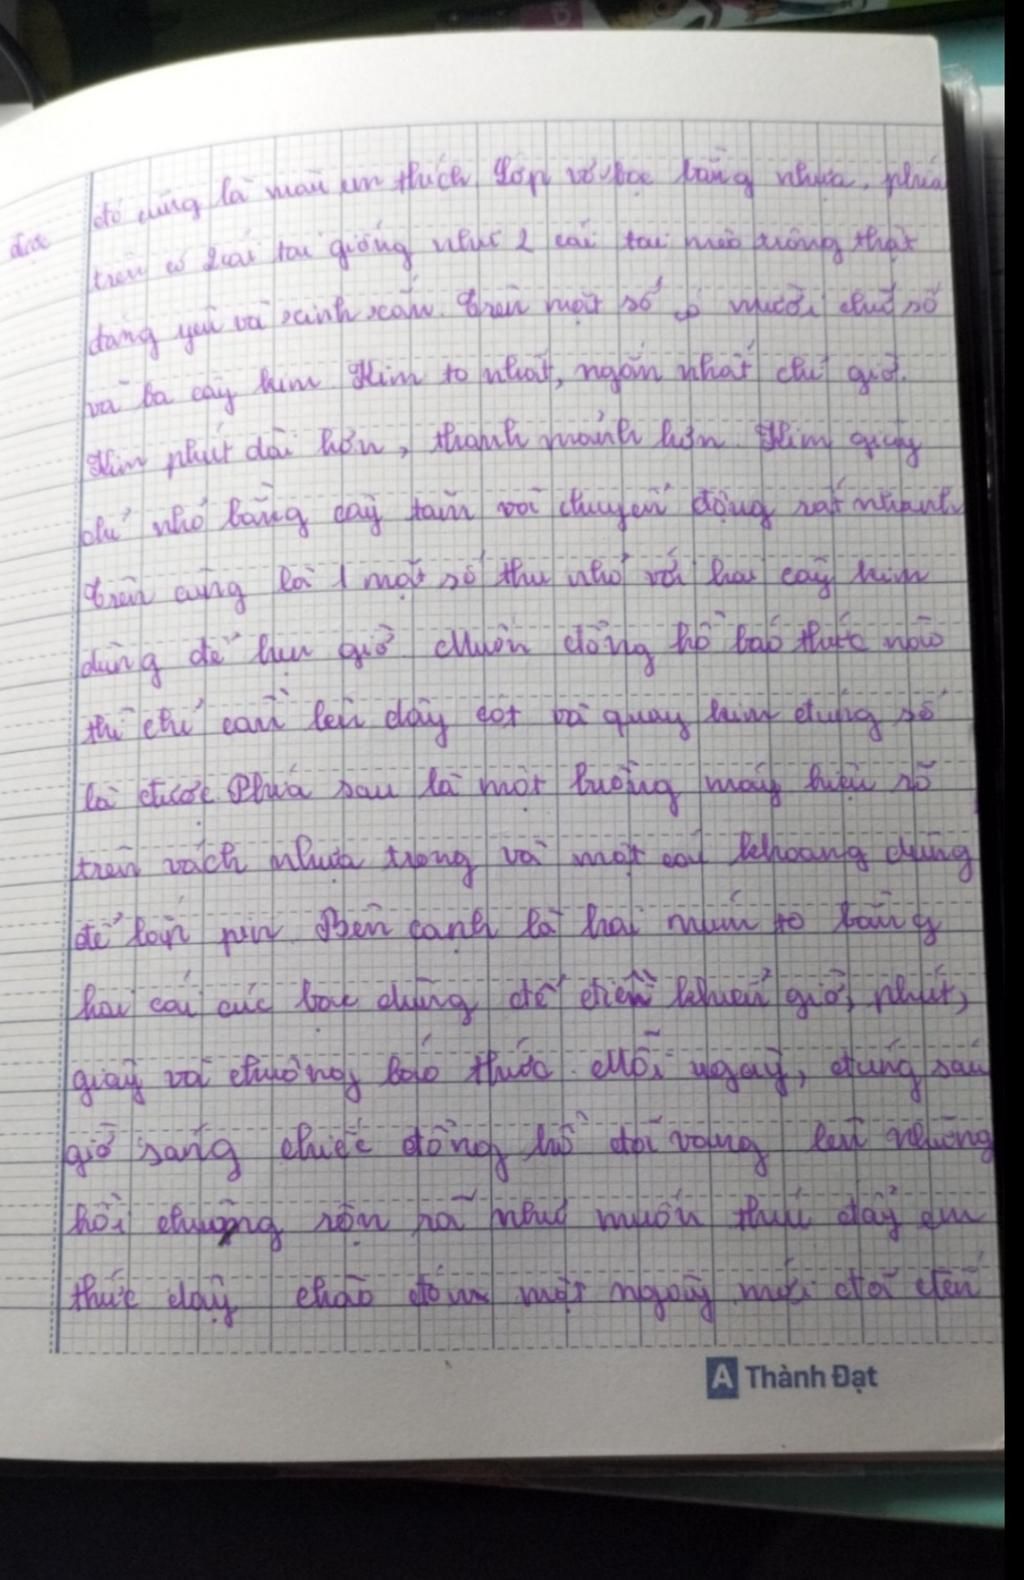 đó cũng là màu em thích. Lớp vỏ bọc bằng nhựa, phía
được
trên có 2 cái tai giống như 2 cái tai mèo trông thật
đáng yêu và xinh xắn. Trên mặt số có mười chữ số
và ba cây kim. Kim to nhất, ngắn nhất chỉ giờ.
Kim phút dài hơn, thanh mảnh hơn. Kim giây
chỉ nhỏ bằng cây tăm và chuyển động rất nhanh
trên cùng là 1 mặt số thu nhỏ với hai cây kim
dùng để hẹn giờ. Muốn đồng hồ báo thức nào
thì chỉ cần lên dây cót và quay kim đúng số
là được. Phía sau là một buồng máy hiện rõ
trên vách nhựa trong và một cái khoang dùng
để lắp pin. Bên cạnh là hai núm to bằng
hai cái cúc bọc dùng để điều khiển giờ, phút,
giây và chuông báo thức. Mỗi ngày, đúng sáu
giờ sáng chiếc đồng hồ đổi vang lên những
hồi chuông rộn rã như muốn thúc đẩy em
thức dậy chào đón một ngày mới đã đến
A Thành Đạt